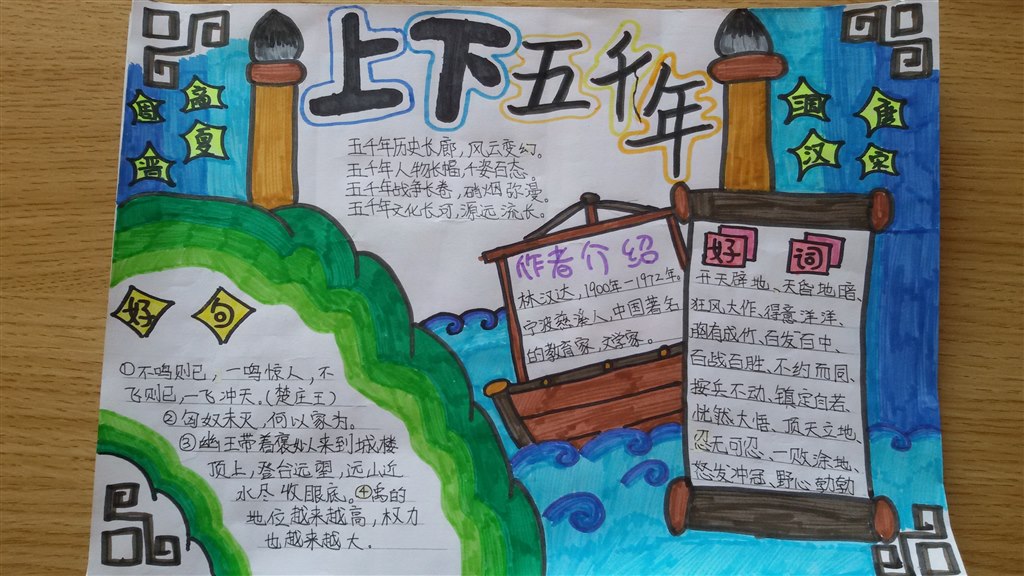 上下五千年
周
商
夏
晋
三国
唐
汉
宋
五千年历史长廊，风云变幻。
五千年人物长幅，千姿百态。
五千年战争长卷，硝烟弥漫。
五千年文化长河，源远流长。
作者介绍
林汉达，1900年-1972年。
宁波慈溪人，中国著名
的教育家，文学家。
好词
开天辟地、天昏地暗、
狂风大作、得意洋洋、
胸有成竹、百发百中、
百战百胜、不约而同、
按兵不动、镇定自若、
恍然大悟、顶天立地、
忍无可忍、一败涂地、
怒发冲冠、野心勃勃
好句
①不鸣则已，一鸣惊人，不
飞则已，一飞冲天。(楚庄王)
②匈奴未灭，何以家为。
③幽王带着褒姒来到城楼
顶上，登台远望，远山近
水尽收眼底。④禹的
地位越来越高，权力
也越来越大。